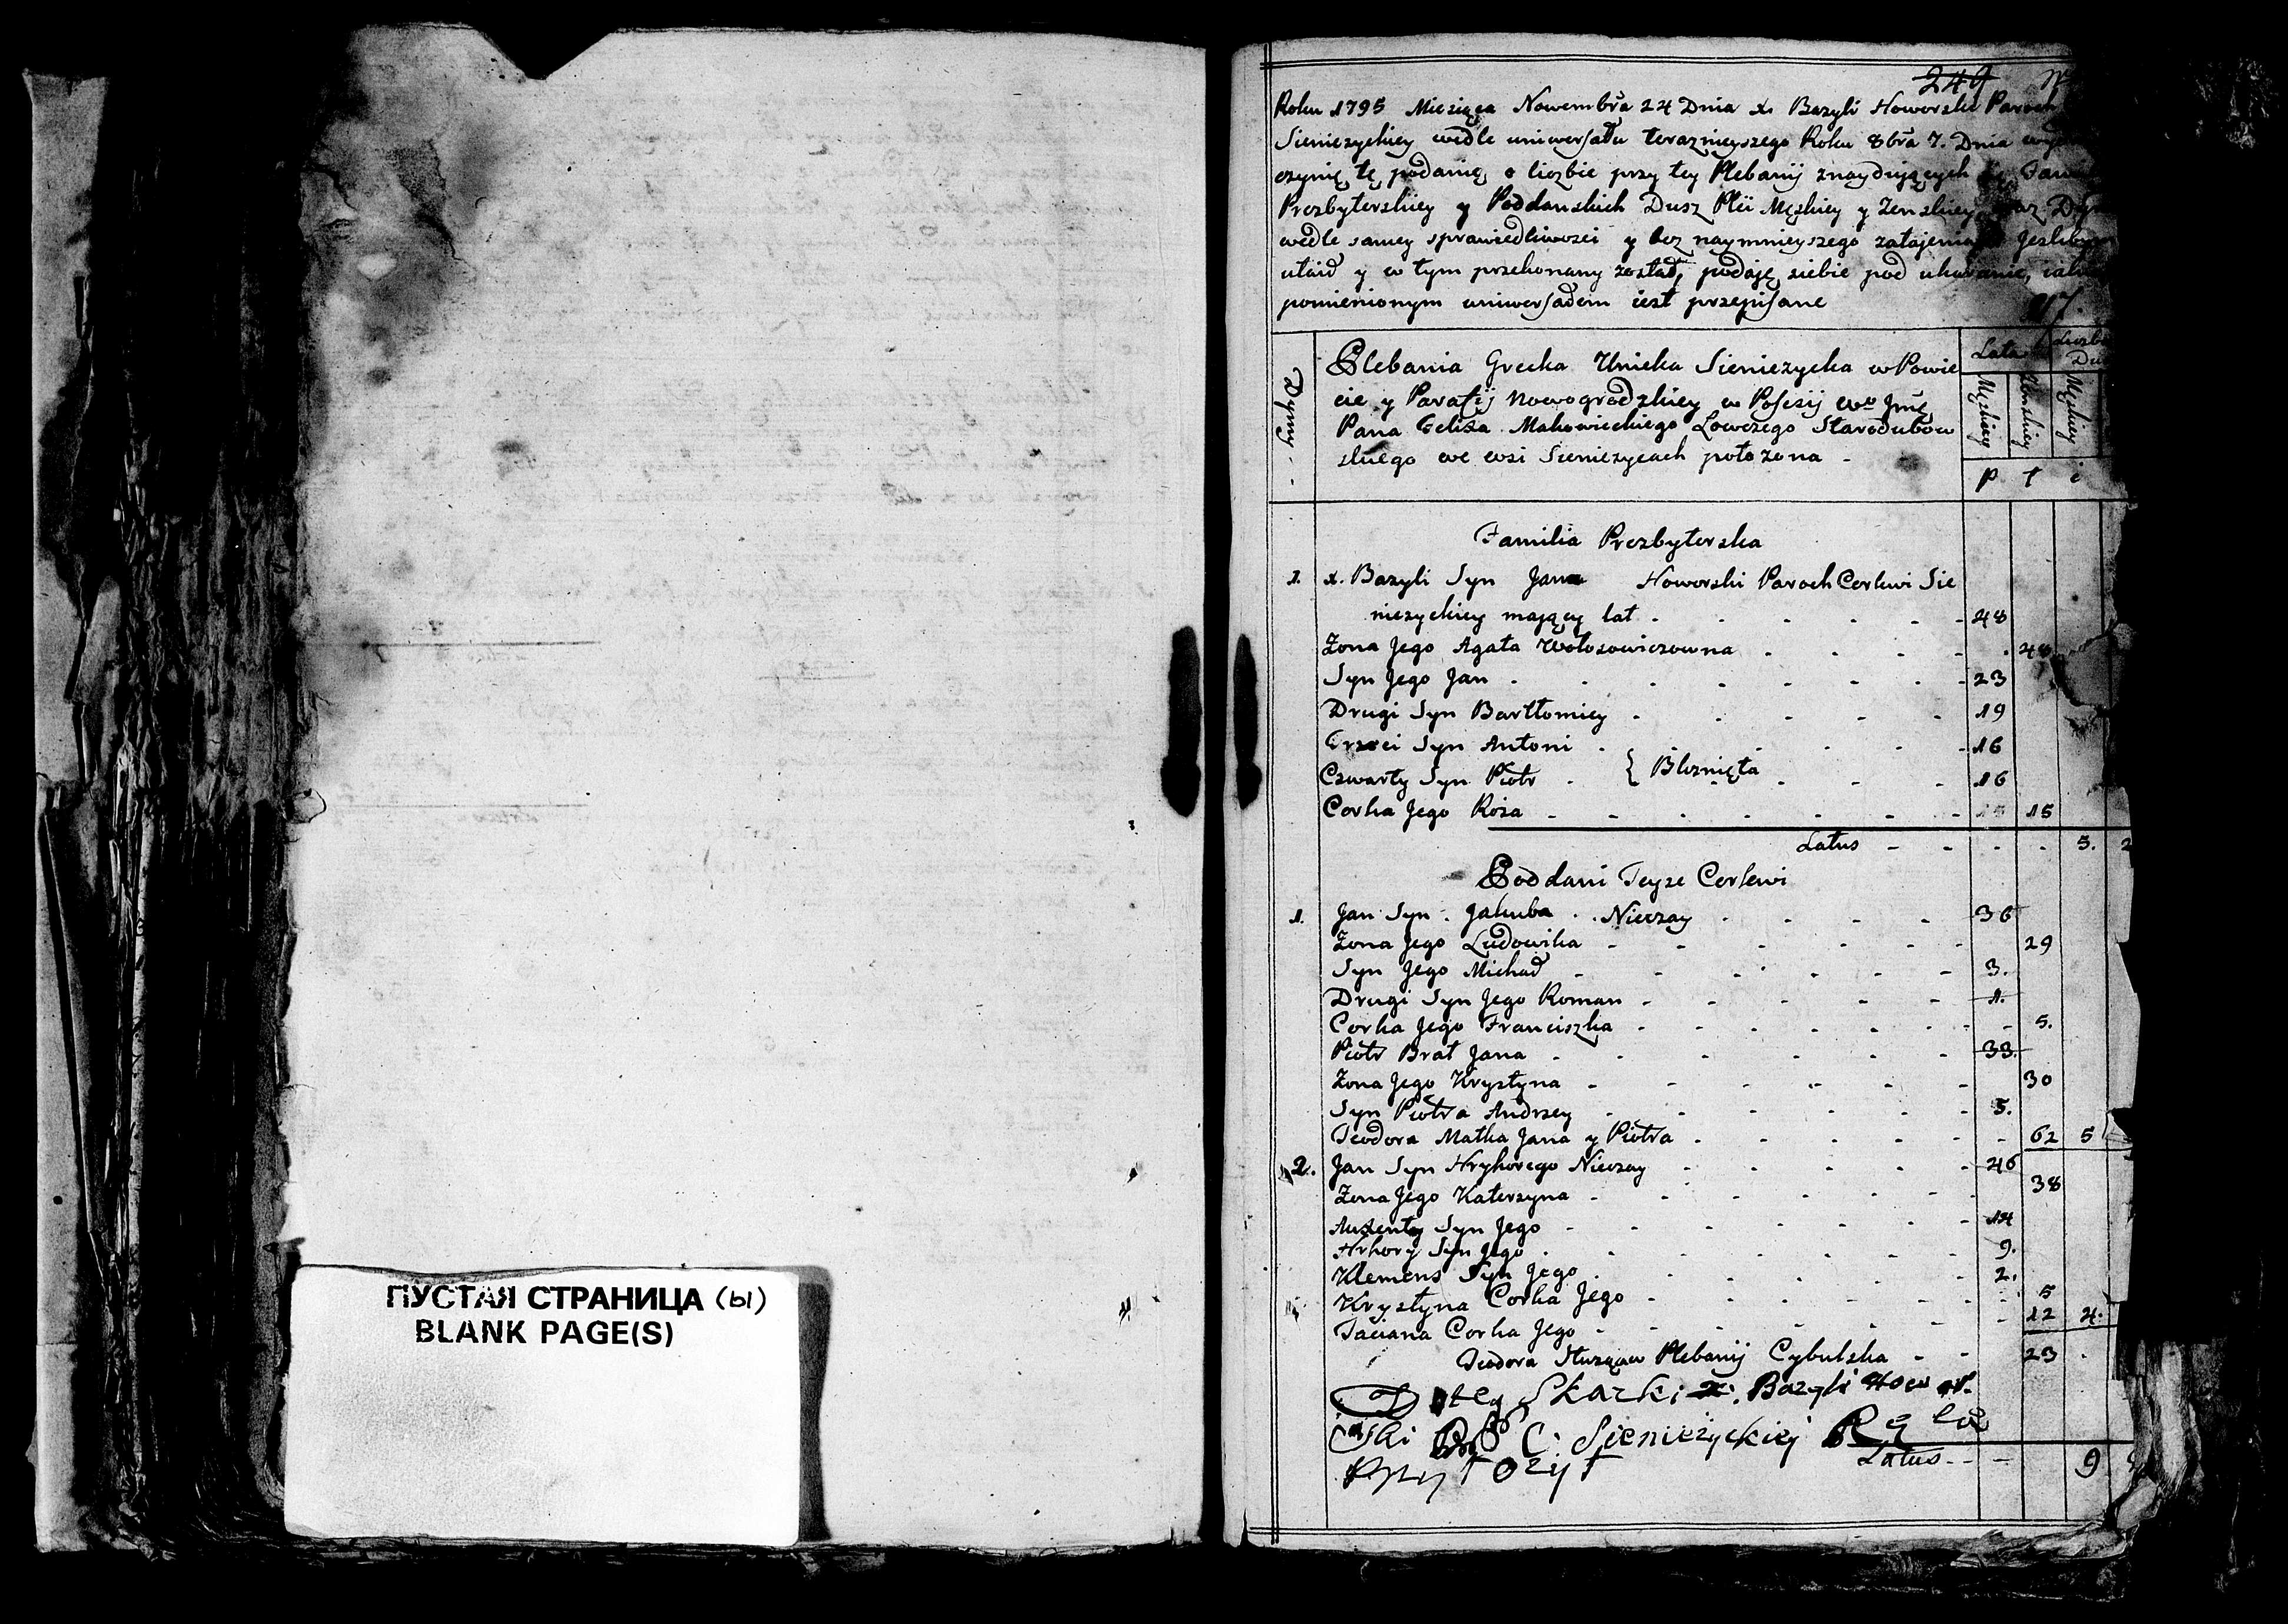 ПУСТАЯ СТРАНИЦА (ы)
BLANK PAGE(S)
249
Roku 1795 Miesiąca Nowembra 24 Dnia x. Bazyli Howorski Paroch
Sieniezyckiey wedle uniwersału teraznieyszego Roku 8bra 7. Dnia
czynię tę podanię o liczbie przy tey Plebanij znaydujących się
Prezbyterskiey y Poddanskich Dusz Płci Męskiey y Zenskiey
wedle samey sprawiedliwosci y bez naymnieyszego zatajenia
utaił y w tym przekonany został, podaję siebie pod ukaranie,
pomienionym uniwersałem iest przepisane
217.
Dymy
Plebania Grecka Unicka Sieniezycka w Powie
cie y Parafij Nowogrodzkiey w Posesij Wo Jmę
Pana Felixa Makowieckiego Łowczego Starodubow
skiego we wsi Sieniezycach położona
Lata
Męskiey
Zenskiey
Męskiey
Familia Prezbyterska
1. x. Bazyli Syn Jana Howorski Paroch Cerkwi Sie
niezyckiey mający lat 48
Zona Jego Agata Wołosowiczowna 48
Syn Jego Jan 23
Drugi Syn Bartłomiey 19
Trzeci Syn Antoni 16
Czwarty Syn Piotr { Bliznięta 16
Corka Jego Roża 15 15
Latus 5. 2
Poddani Teyze Cerkwi
1. Jan Syn Jakuba Nieczay 36
Zona Jego Ludowika 29
Syn Jego Michał 3.
Drugi Syn Jego Roman 1.
Corka Jego Franciszka 5.
Piotr Brat Jana 33.
Zona Jego Krystyna 30
Syn Piotra Andrzey 5.
Teodora Matka Jana y Piotra 62 5
2. Jan Syn Hryhorego Nieczay 46
Zona Jego Katerzyna 38
Auxenty Syn Jego 14
Hrhory Syn Jego 9.
Klemens Syn Jego 2.
Krystyna Corka Jego 5
Taciana Corka Jego 12 4.
Teodora Służąca Plebanij Cybulska 23
Do tey Skazki x. Bazyli Howor
ski C. Sieniezyckiej Rękę
Przyłożył
Latus 9